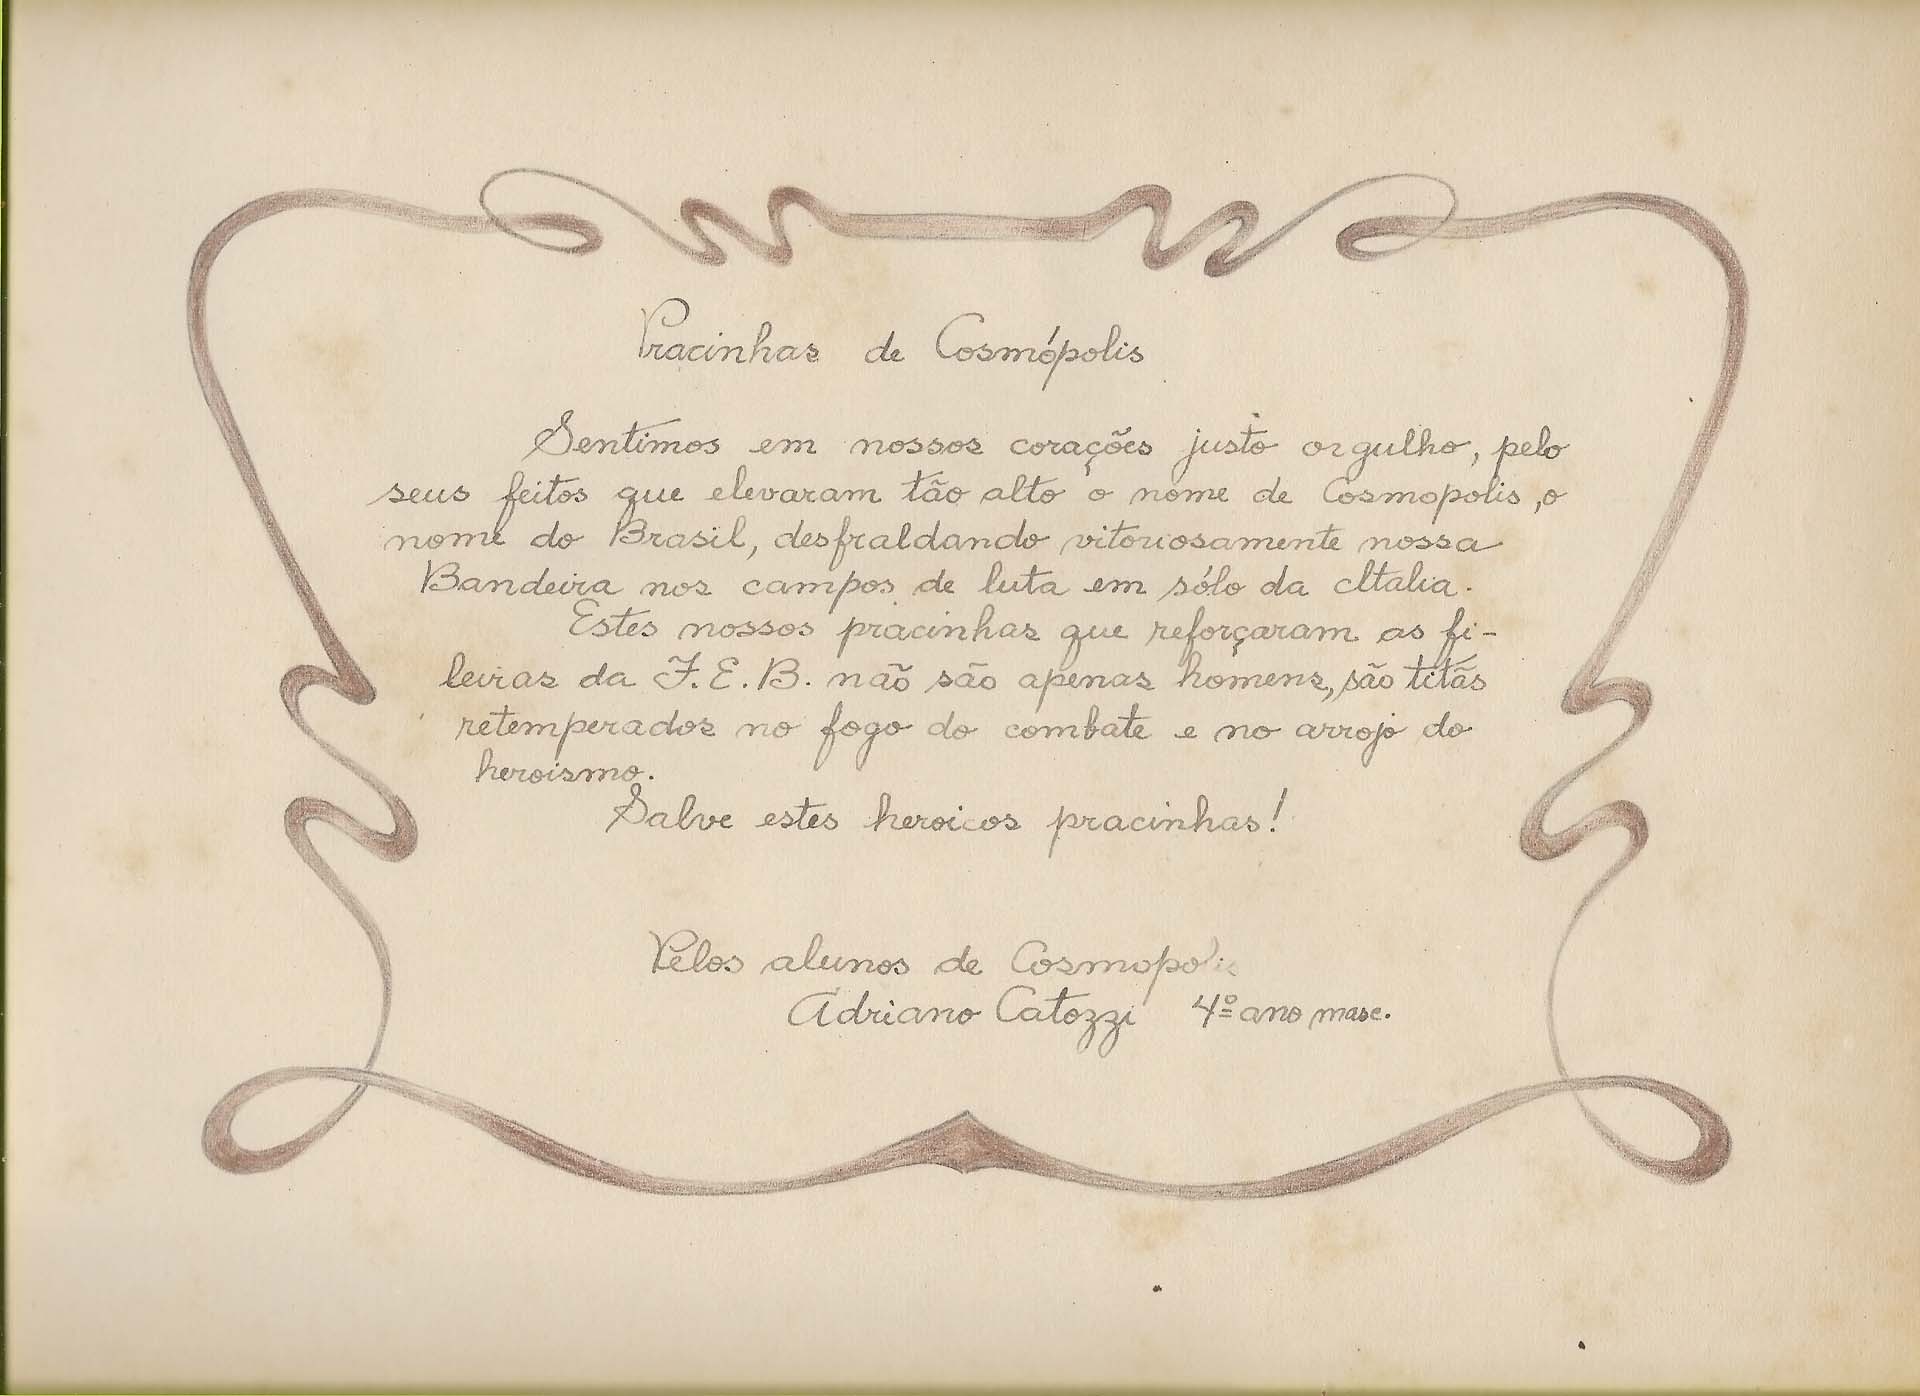 Pracinhas de Cosmópolis
Sentimos em nossos corações justo orgulho, pelo
seus feitos que elevaram tão alto o nome de Cosmopolis, o
nome do Brasil, desfraldando vitoriosamente nossa
Bandeira nos campos de luta em sólo da Italia.
Estes nossos pracinhas que reforçaram as fi-
leiras da F.E.B. não são apenas homens, são titãs
retemperados no fogo do combate e no arrojo do
heroismo.
Salve estes heroicos pracinhas!
Pelos alunos de Cosmopolis
Adriano Catozzi 4º ano masc.